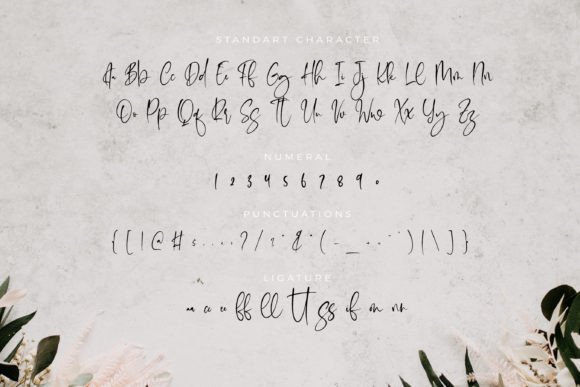 STANDART CHARACTER
Aa Bb Cc Dd Ee Ff Gg Hh Ii Jj Kk Ll Mm Nn
Oo Pp Qq Rr Ss Tt Uu Vv Ww Xx Yy Zz
NUMERAL
1 2 3 4 5 6 7 8 9 0
PUNCTUATIONS
{ [ ! @ # $ . , : ; ? / & ( - _ ) | \ ] }
LIGATURE
aa cc ee ff ll tt ss if on nn